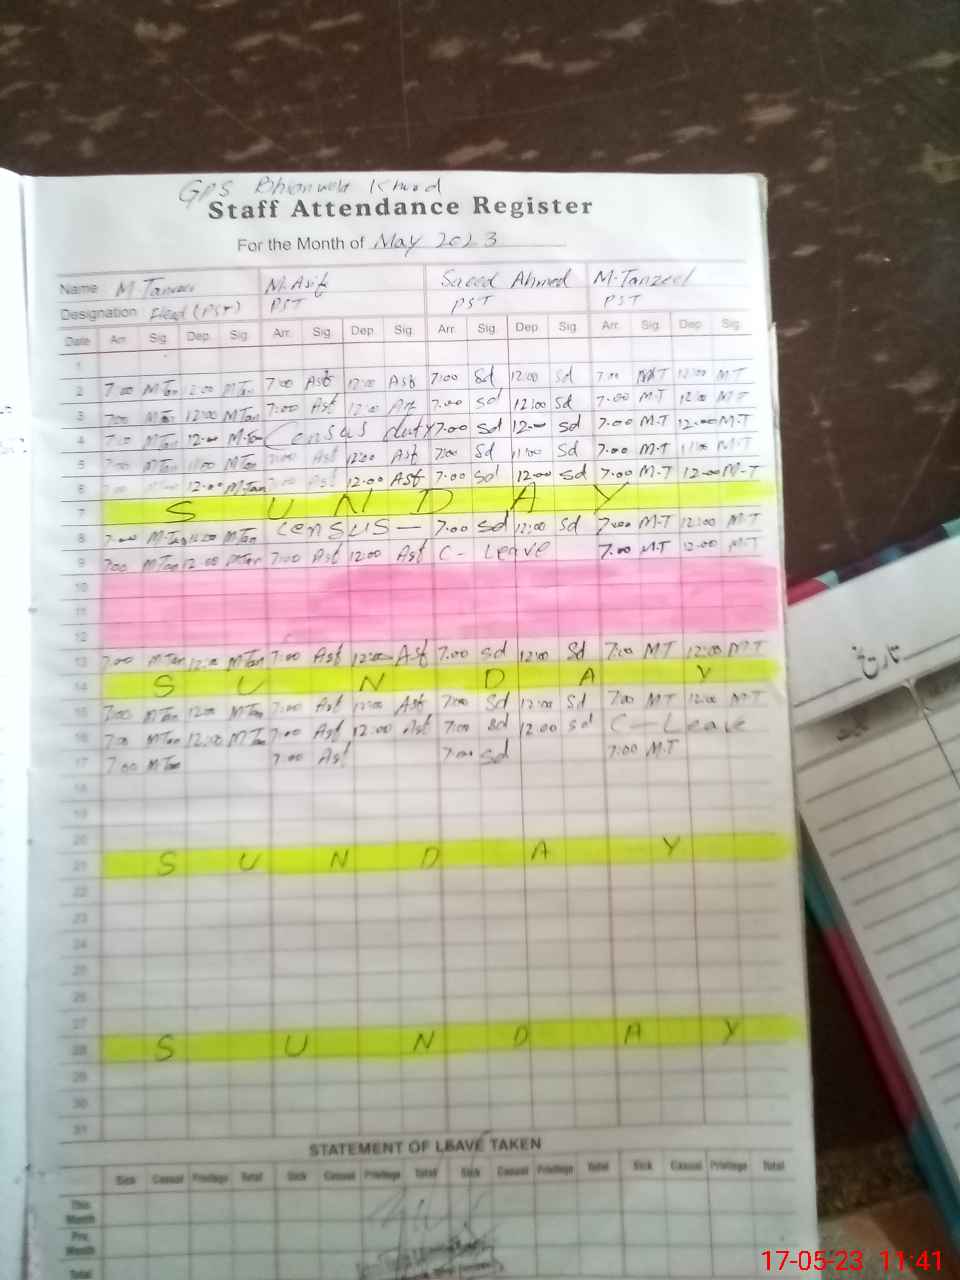 GPS Khurd
Staff Attendance Register
For the Month of May 2023
Name M. Asif Saeed Ahmed M-Tanzeel
Designation Head (PST) PST PST PST
Date Arr. Sig. Dep. Sig. Arr. Sig Dep Sig. Arr. Sig Dep. Sig. Arr. Sig. Dep. Sig.
1
2 7:00 M Tan 12:00 M Tan 7:00 Asf 12:00 Asf 7:00 Sd 12:00 Sd 7:00 M.T 12:00 M T
3 7:00 M Tan 12:00 M Tan 7:00 Asf 12:00 Asf 7:00 Sd 12:00 Sd 7:00 M.T 12:00 M T
4 7:00 M Tan 12:00 M.Tan Census duty 7:00 Sd 12:00 Sd 7:00 M.T 12:00 M.T
5 7:00 M Tan 11:00 M Tan 7:00 Asf 12:00 Asf 7:00 Sd 11:00 Sd 7:00 M.T 11:00 M-T
6 12:00 M Tan Asf 12:00 Asf 7:00 Sd 12:00 Sd 7:00 M-T 12:00 M-T
7 S U N D A Y
8 7:00 M-Tan 12:00 M Tan Census — 7:00 Sd 12:00 Sd 7:00 M-T 12:00 M-T
9 7:00 M Tan 12:00 M Tan 7:00 Asf 12:00 Asf C- Leave 7:00 M.T 12:00 M.T
10
11
12
13 7:00 M Tan 12:00 M Tan 7:00 Asf 12:00 Asf 7:00 Sd 12:00 Sd 7:00 MT 12:00 M.T
14 S U N D A Y
15 7:00 M Tan 12:00 M Tan 7:00 Asf 12:00 Asf 7:00 Sd 12:00 Sd 7:00 MT 12:00 M T
16 7:00 M Tan 12:00 M Tan 7:00 Asf 12:00 Asf 7:00 Sd 12:00 Sd C — Leave
17 7:00 M Tan 7:00 Asf 7:00 Sd 7:00 M.T
18
19
20
21 S U N D A Y
22
23
24
25
26
27
28 S U N D A Y
29
30
31
STATEMENT OF LEAVE TAKEN
Sick Casual Privilege Total Sick Casual Privilege Total Sick Casual Privilege Total Sick Casual Privilege Total
This Month
Pre. Month
Total
تاریخ
17-05-23 11:41